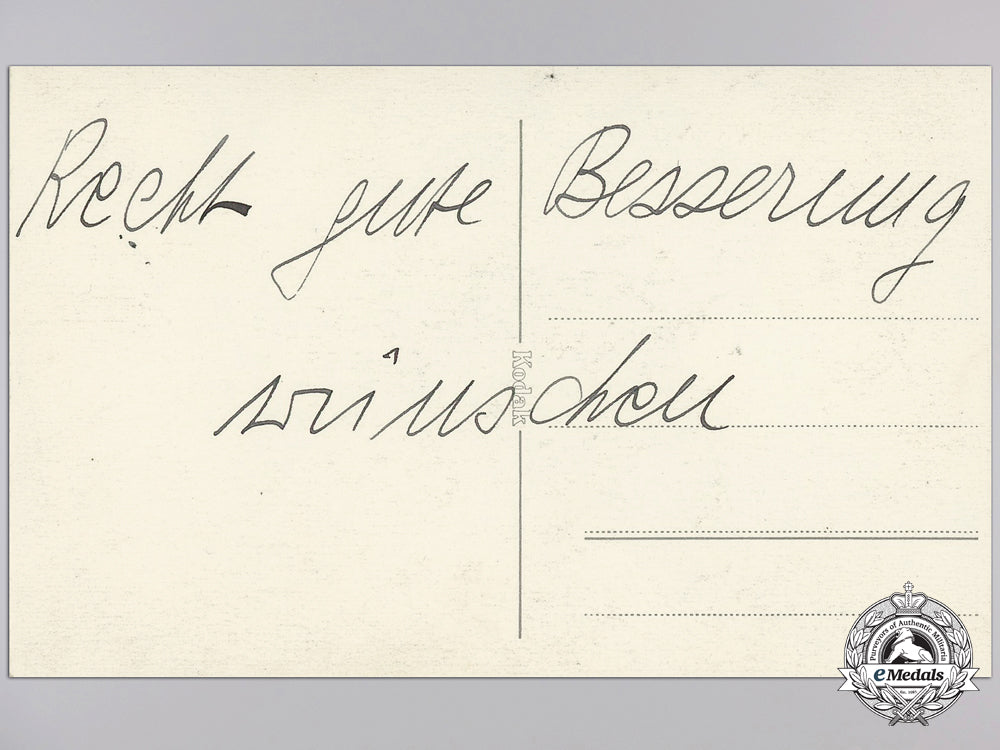 Recht gute Besserung
wünschen
Kodak
Purveyors of Authentic Militaria
eMedals